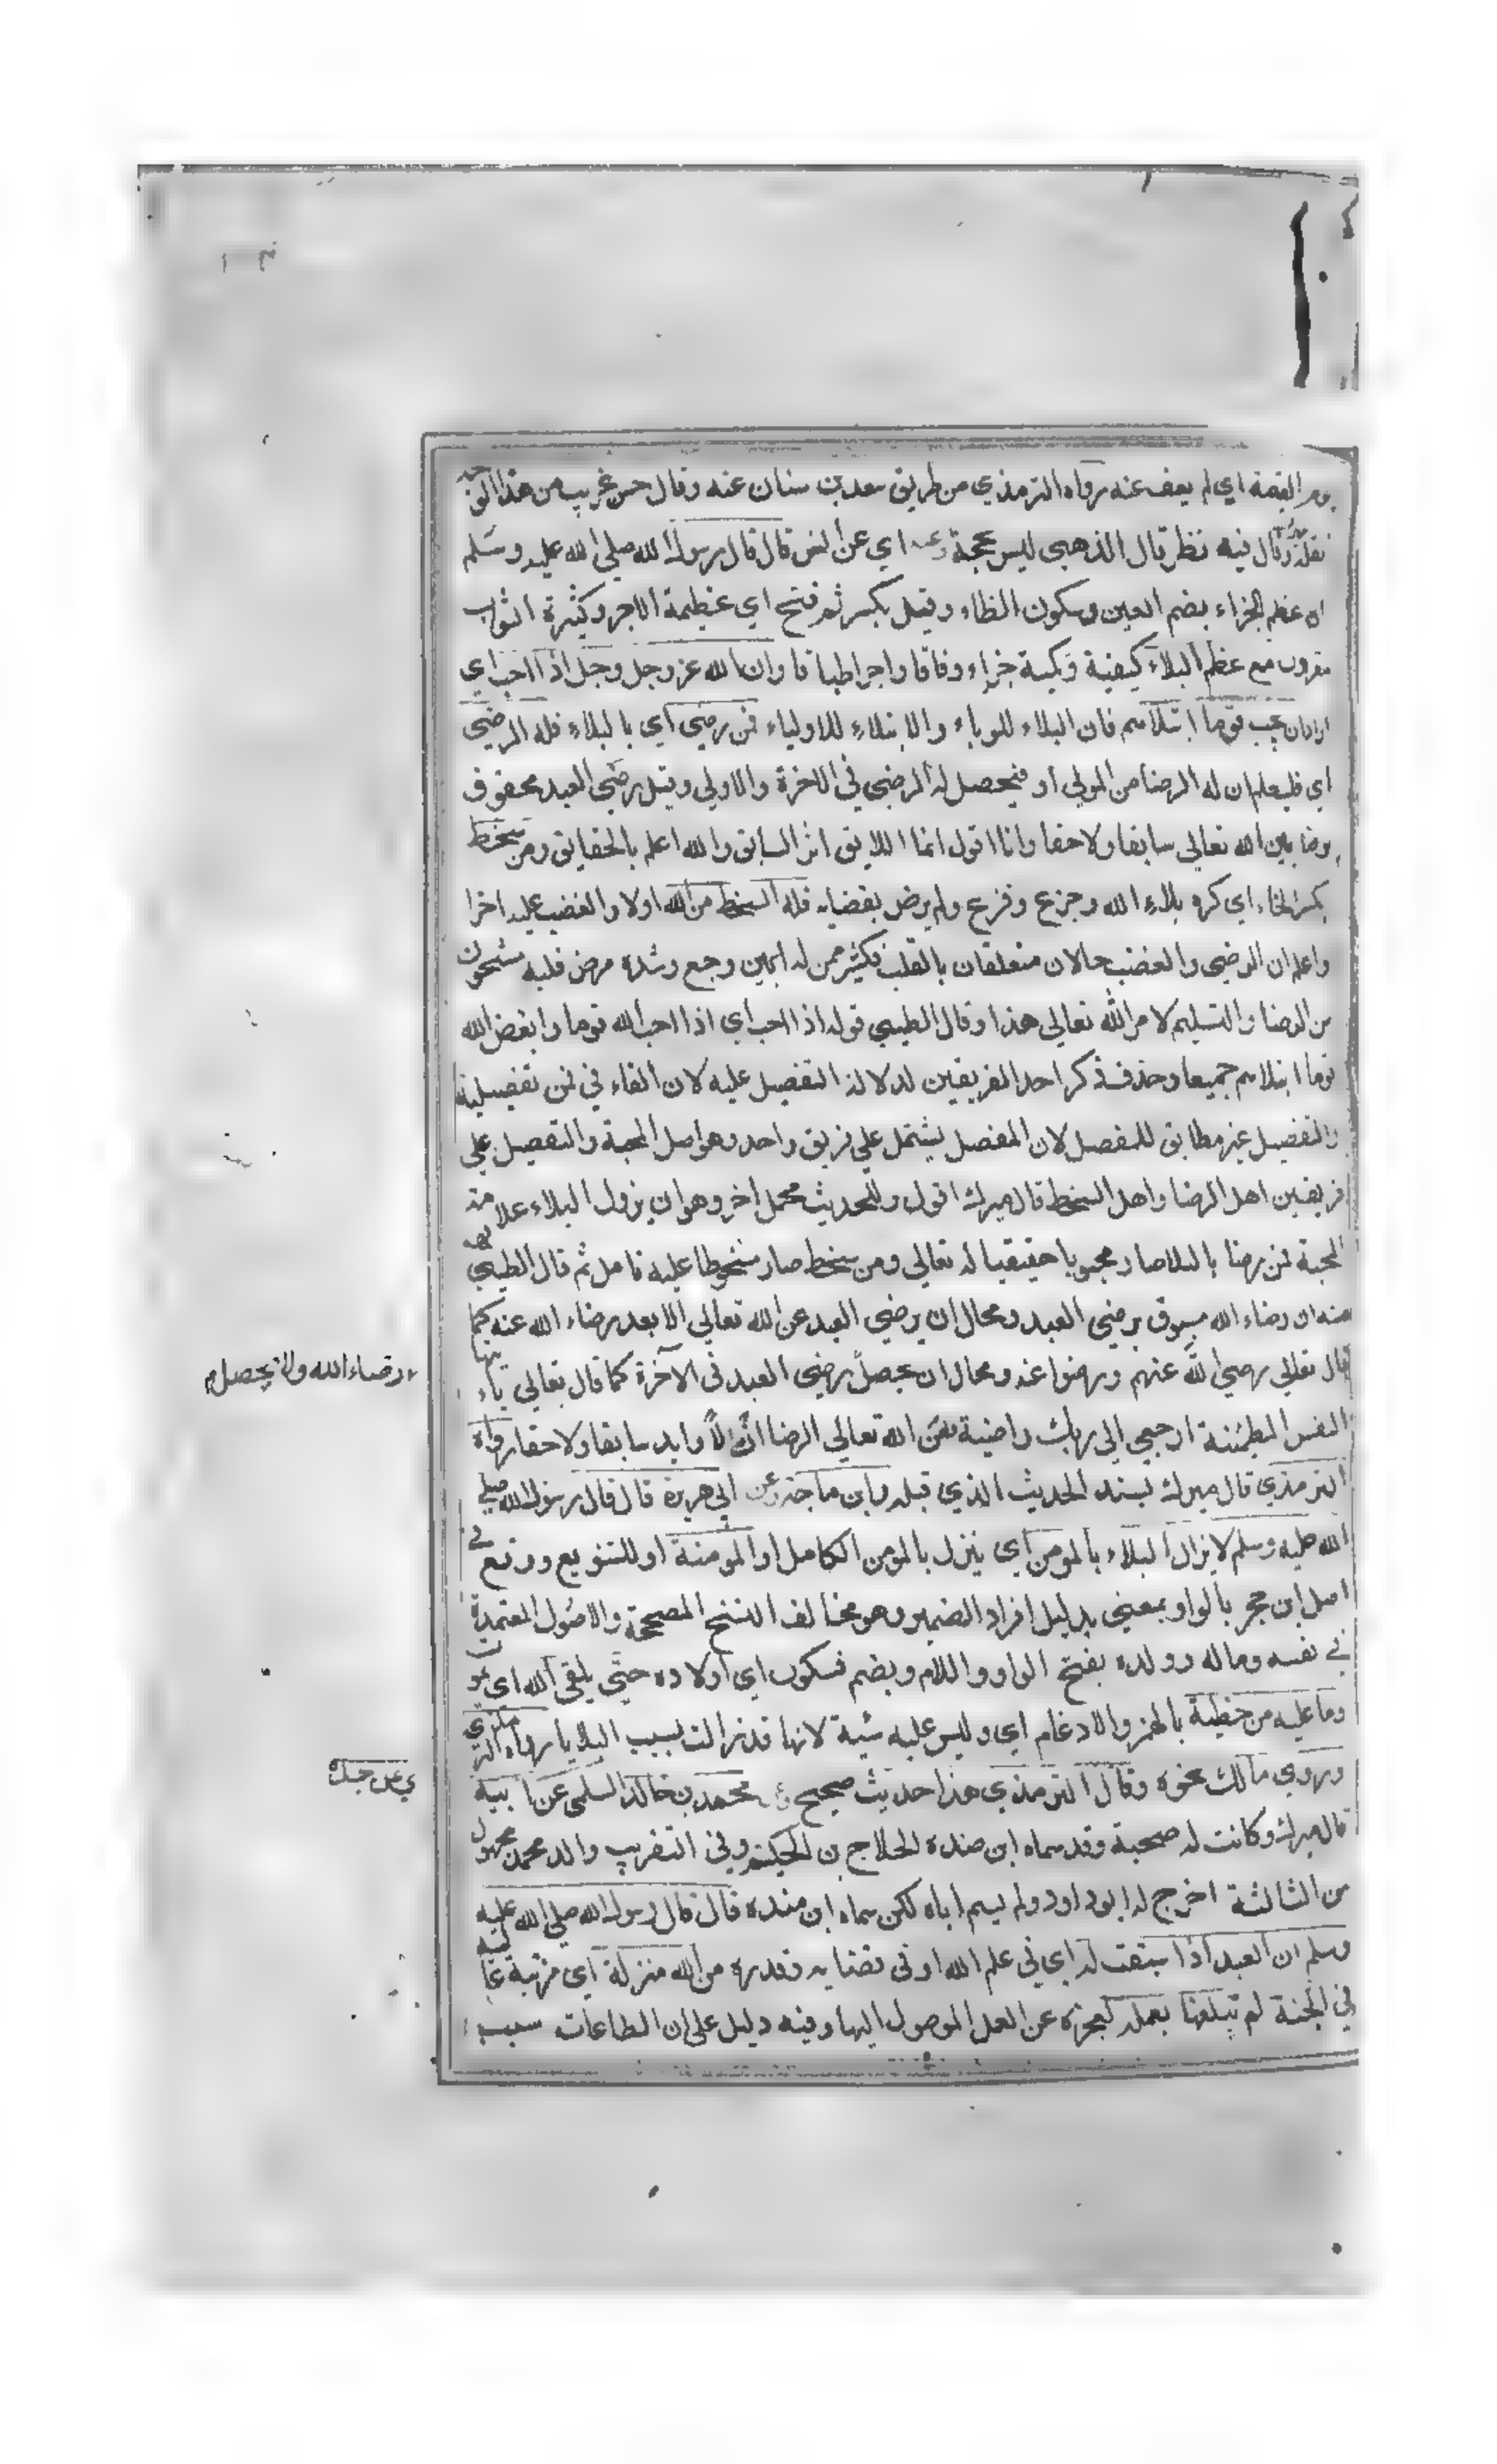 يوم القيمة اي لم يعف عنه رواه الترمذي من طريق سعد بن سنان عنه وقال حسن غريب من هذا الوجه
نقله وقال فيه نظر قال الذهبي ليس بحجة وعنه اي عن انس قال قال رسول الله صلى الله عليه وسلم
ان عظم الجزاء بضم العين وسكون الظاء وقيل بكسر ثم فتح اي عظيمة الاجر وكثيرة الثواب
مقرون مع عظم البلاء كيفية وكمية جزاء وفاقا واجرا طباقا وان الله عز وجل وجل اذا احب اي
اراد ان يحب قوما ابتلاهم فان البلاء للوباء والابتلاء للاولياء فمن رضي اي بالبلاء فله الرضي
اي فليعلم ان له الرضا من المولي او فيحصل له الرضي في الاخرة والاولي وقيل رضي العبد محفوف
برضا يين الله تعالى سابقا ولاحقا وانا اقول انما اللايق اثر السابق والله اعلم بالحقايق ومن سخط
بكسر الخاء اي كره بلاء الله وجزع وفزع ولم يرض بقضايه فله السخط من الله اولا والغضب عليه اخرا
واعلم ان الرضي والغضب حالان متعلقان بالقلب فكثير ممن له انين وجع وشدة مرض قلبه مشحون
من الرضا والتسليم لامر الله تعالى هذا وقال الطيبي قوله اذا احب اي اذا احب الله قوما وابغض الله
قوما ابتلاهم جميعا وحذف ذكر احد الفريقين لدلالة التفصيل عليه لان الفاء في فمن تفصيلية
والتفصيل غير مطابق للمفصل لان المفصل يشتمل علي فريق واحد وهو اصل المحبة والتفصيل علي
فريقين اهل الرضا واهل السخط قال ميرك اقول وللحديث محمل اخر وهو ان نزول البلاء علامة
المحبة فمن رضا بالبلا صار محبوبا حقيقيا له تعالى ومن سخط صار مسخوطا عليه تامل ثم قال الطيبي يفهم
منه ان رضاء الله مسبوق برضي العبد ومحال ان يرضي العبد عن الله تعالى الا بعد رضاء الله عنه كما
قال تعالى رضي الله عنهم ورضوا عنه ومحال ان يحصل رضي العبد في الآخرة كما قال تعالى يا ايتها
رضاء الله ولا يحصل
النفس المطمئنة ارجعي الي ربك راضية فعن الله تعالى الرضا ازلا وابدا سابقا ولاحقا رواه
الترمذي قال ميرك لسند الحديث الذي قبله وابن ماجة وعن ابي هريرة قال قال رسول الله صلي
الله عليه وسلم لا يزال البلاء بالمومن اي ينزل بالمومن الكامل او المومنة او للتنويع ووقع في
اصل ابن حجر بالواو بمعني بدليل افراد الضمير وهو مخالف النسخ المصححة والاصول المعتمدة
في نفسه وماله وولده بفتح الواو واللام وبضم فسكون اي اولاده حتي يلقي الله اي يموت
وما عليه من خطية بالهمز والادغام اي وليس عليه سيئة لانها قد زالت بسبب البلايا رواه الترمذي
وروي مالك نحوه وقال الترمذي هذا حديث صحيح وعن محمد بن خالد السلمي عن ابيه
ي عن جده
قال ميرك وكانت له صحبة وقد سماه ابن منده الحلاج بن الحكيم وفي التقريب والد محمد مجهول
من الثالثة اخرج له ابو داود ولم يسم اباه لكن سماه ابن منده قال قال رسول الله صلي الله عليه
وسلم ان العبد اذا سبقت له اي في علم الله او في قضايه وقدره من الله منزلة اي مرتبة عالية
في الجنة لم يبلغها بعمله لعجزه عن العمل الموصول اليها وفيه دليل على ان الطاعات سبب